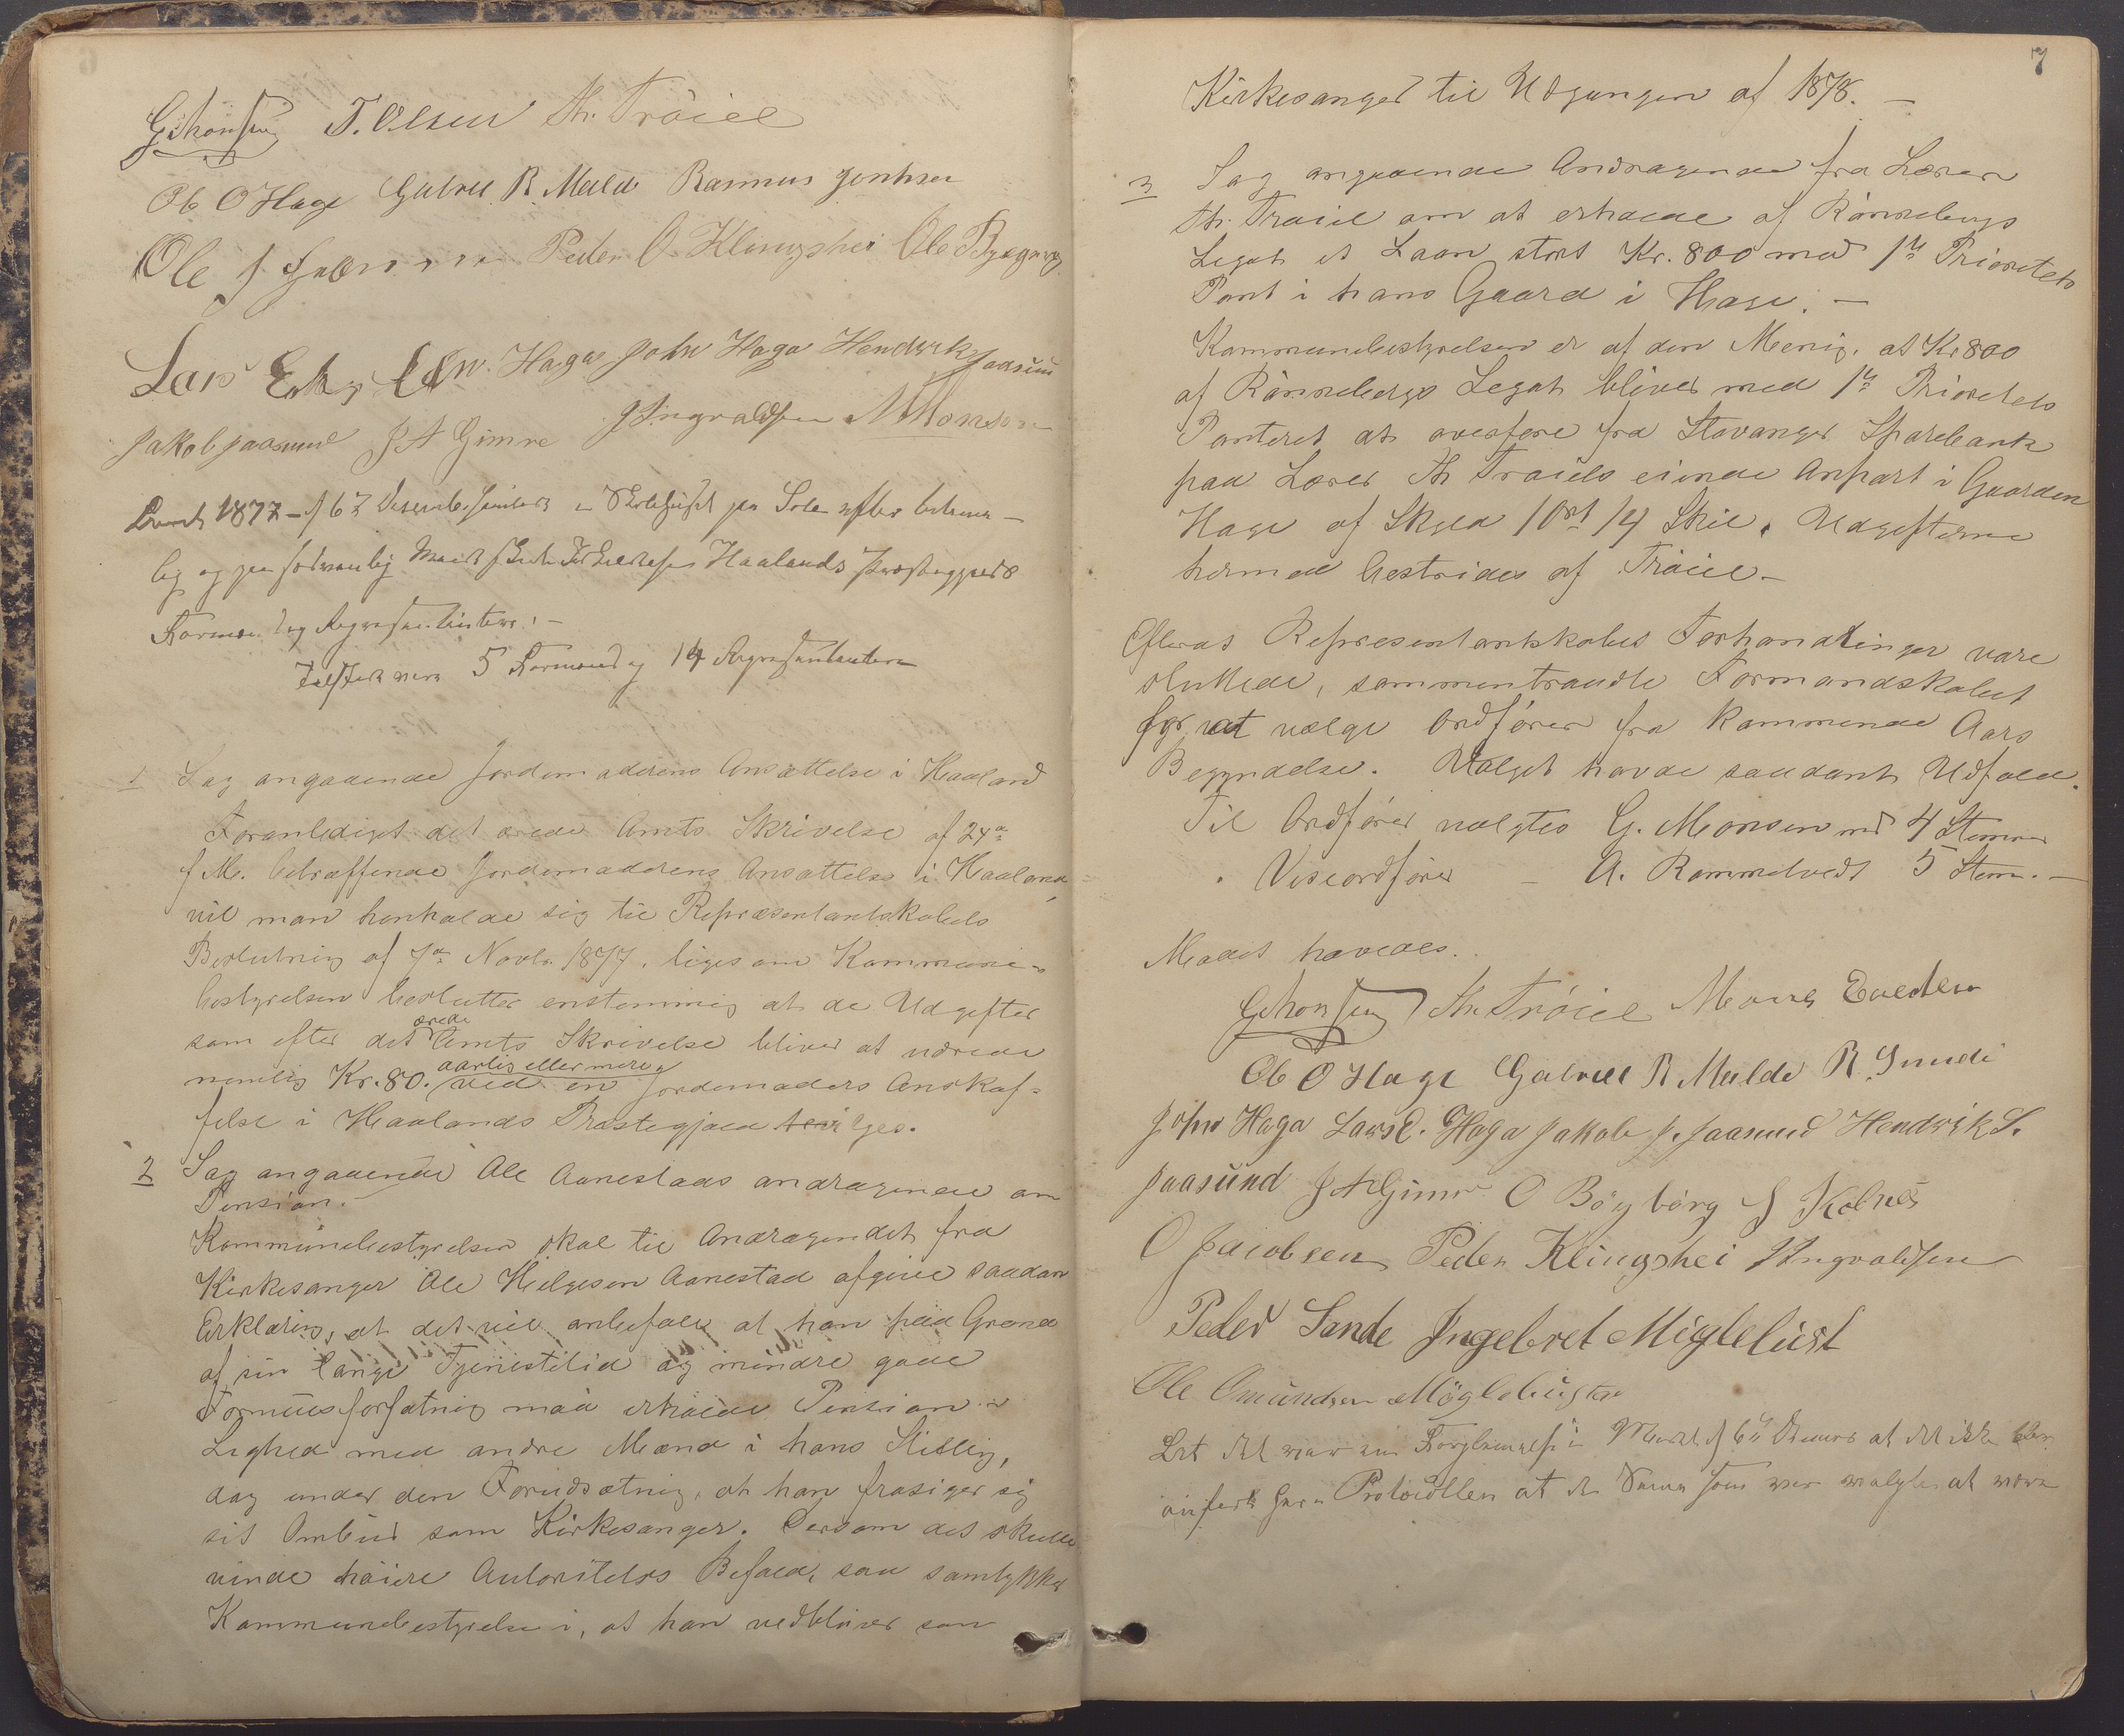 GMonsen T. Olsen Th. Tröiel
Ole O Hage Gabriel R. Melde Rasmus
Ole J Peder O. Klingshei Ole Bygberg
Lars Haga John Haga Hendrik Jaasund
Jakob Jaasund J A Gimre J Ingvaldsen A Monsen
1877 16 Desember paa Sole efter
lig og paa Haalands Præstegjeld
Formænd og Repræsentantere. –
Tilstede vare 5 Formænd og 14 Repræsentantere
1 Sag angaaende Jordemoderens Ansættelse i Haaland
Foranlediget det ærede Amts Skrivelse af 24de
f. M. betræffende Jordemoderens Ansættelse i Haaland,
vil man henholde sig til Repræsentantskabets
Beslutning af 7de Novbr. 1877, ligesom Kommune-
bestyrelsen beslutter enstemmig at de Udgifter
som efter det ærede Amts Skrivelse bliver at udrede
nemlig Kr. 80. aarlig eller mere ved en Jordemoders Anskaf-
felse i Haalands Præstegjæld
2 Sag angaaende Ole Aanestads andragende om
Pension. –
Kommunebestyrelsen skal til Andragendet fra
Kirkesanger Ole Helgesen Aanestad afgive saadan
Erklæring, at det vil anbefale at han paa Grund
af sin lange Tjenestetid og mindre gode
Formuesforfatning maa erholde Pension i
Lighed med andre Mænd i hans Stilling,
dog under den Forudsætning, at han frasiger sig
sit Ombud som Kirkesanger. Dersom det skulle
vinde höiere Autoritetets Bifald, saa samtykker
Kommunebestyrelsen i, at han vedbliver som
7
Kirkesanger til Udgangen af 1878. –
3 Sag angaaende Andragende fra Lærer
Th. Tröiel om at erholde af Rönnebergs
Legat et Laan stort Kr. 800 mod 1ste Prioritets
Pant i hans Gaard i Hage. –
Kommunebestyrelsen er af den Mening, at Kr 800
af Rönnebergs Legat bliver med 1ste Prioritets
Panteret at overföre fra Stavanger Sparebank
paa Lærer Th Tröiels eiende Anpart i Gaarden
Hage af Skyld 1 Ort 14 Skil. Udgifterne
hermed bestrides af Tröiel –
Efterat Representantskabets Forhandlinger vare
sluttede, sammentraadte Formandskabet
for at vælge Ordförer fra kommende Aars
Begyndelse. Valget havde saadant Udfald.
Til Ordförer valgtes G. Monsen md 4 Stemmer
" Viseordförer – A. Rommetvedt 5 Stem. –
Mödet hævedes.
GMonsen Th. Tröiel Mons
Ole O Hage Gabriel R Melde R Sunde
John Haga Lars E. Haga Jakob J. Jaasund Hendrik S.
Jaasund J A Gimre O Böyborg J Kolnes
O Jacobsen Peder Klingshei J Ingvaldsen
Peder Sande Ingebret Miglebust
Ole Omundsen Möglebusten
det var en Forglemmelse i Mödet at det ikke blev
anfört her i Protocollen at de som var valgte at være